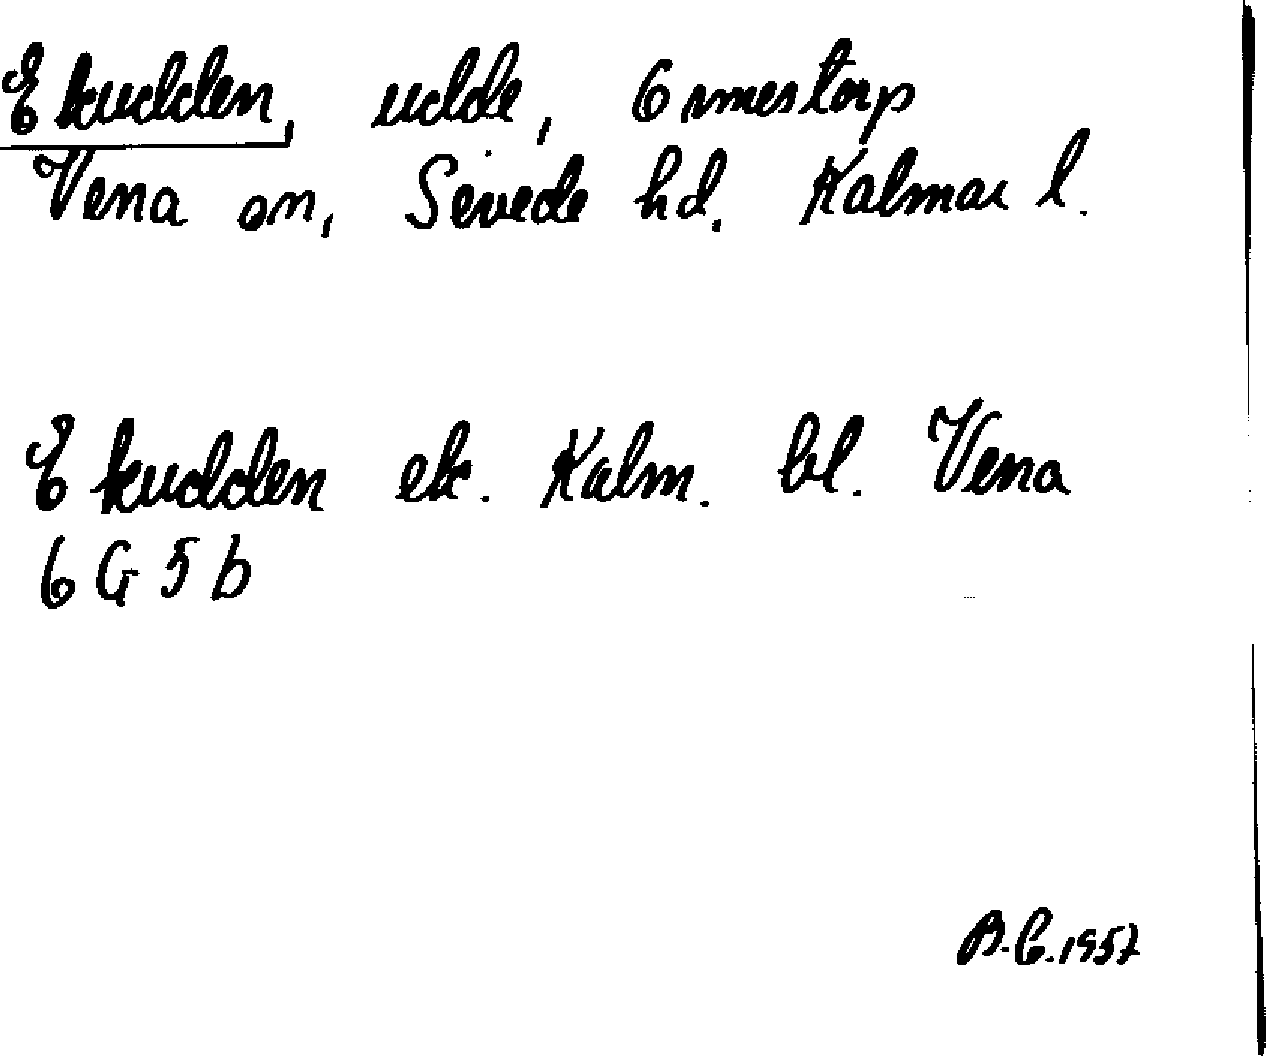 Ekudden, udde, Ormestorp
Vena sn, Sevede hd. Kalmar l.
Ekudden ek. Kalm. bl. Vena
6 G 5 b
B.C. 1957